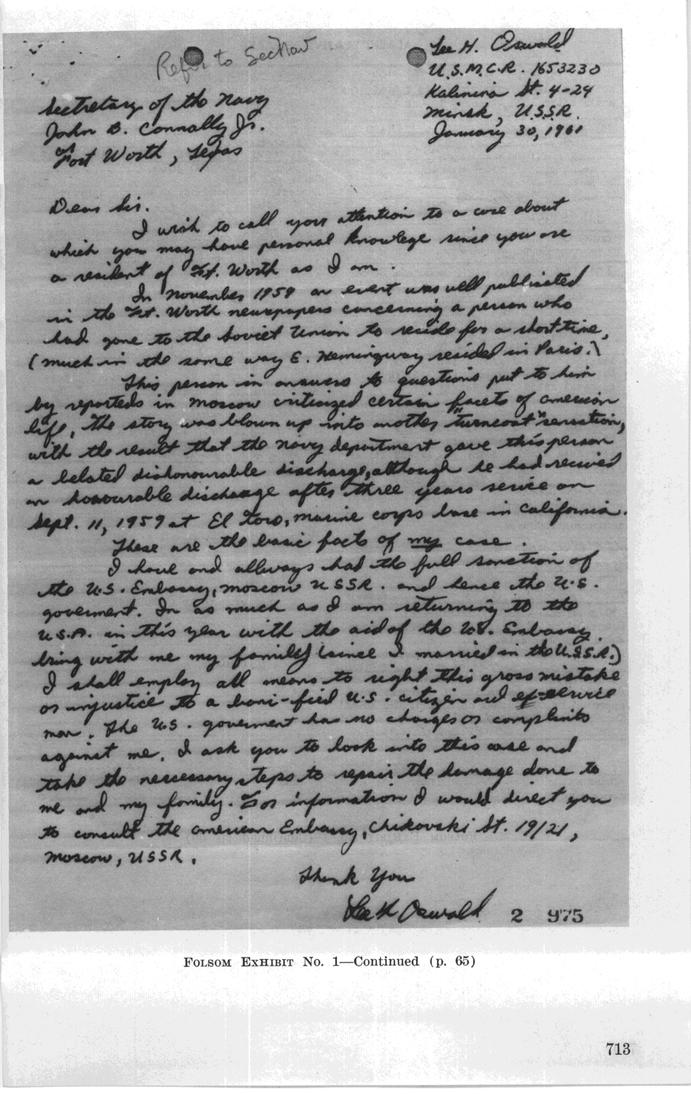 Refer to SecNav
Lee H. Oswald
U.S.M.C.R. 1653230
Kalinina St. 4-24
Minsk, USSR.
January 30, 1961
Secretary of the Navy
John B. Connally Jr.
Fort Worth, Texas
Dear Sir.
I wish to call your attention to a case about
which you may have personal knowlege since you are
a resident of Ft. Worth as I am.
In November 1959 an event was well publicated
in the Ft. Worth newspapers concerning a person who
had gone to the Soviet Union to reside for a short time,
(much in the same way E. Hemingway resided in Paris.)
This person in answers to questions put to him
by reporteds in Moscow criticized certain facets of american
life, the story was blown up into another "turncoat" sensation,
with the result that the navy department gave this person
a belated dishonourable discharge, although he had received
an honourable discharge after three years service on
Sept. 11, 1959 at El Toro, marine corps base in california.
These are the basic facts of my case.
I have and allways had the full sanction of
the U.S. Embassy, moscow USSR. and hence the U.S.
goverment. In as much as I am returning to the
U.S.A. in this year with the aid of the U.S. Embassy.
bring with me my family (since I married in the U.S.S.R.)
I shall employ all means to right this gross mistake
or injustice to a boni-fied U.S. citizen and ex-service
man. The U.S. goverment has no charges or complints
against me. I ask you to look into this case and
take the neccessary steps to repair the damage done to
me and my family. For information I would direct you
to consult the american Embassy, Chikovski St. 19/21,
moscow, USSR.
Thank You
Lee H Oswald
2 975
FOLSOM EXHIBIT No. 1—Continued (p. 65)
713